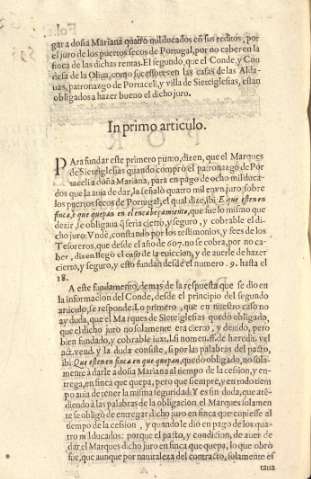 gar a doña Mariana quatro mil ducados en sus reditos, por
el juro de los puertos secos de Portugal, por no caber en la
finca de las dichas rentas. El segundo, que el Conde, y Con
desa de la Oliua, como successores en las casas de las Alda-
uas, patronazgo de Portaceli, y villa de Sieteiglesias, estan
obligados a hazer bueno el dicho juro.
In primo articulo.
PAra fundar este primero punto, dizen, que el Marques
de Sieteiglesias quando comprò el patronazgo de Por
taceli a doña Mariana, para en pago de ocho mil duca-
dos que la auia de dar, la señalò quatro mil en vn juro sobre
los puertos secos de Portugal, el qual dize, ibi: E que esten en
finca, y que quepan en el encabeçamiento, que fue lo mismo que
dezir, se obligaua q̃ seria cierto, y seguro, y cobrable el di-
cho juro. Vnde, constando por los testimonios, y fees de los
Tesoreros, que desde el año de 607. no se cobra, por no ca-
ber, dizen llegò el caso de la euiccion, y de auerle de hazer
cierto, y seguro, y esto fundan desde el numero. 9. hasta el
18.
A este fundamento, demas de la respuesta que se dio en
la informacion del Conde, desde el principio del segundo
articulo, se responde. Lo primero, que en nuestro caso no
ay duda, que el Marques de Sieteiglesias quedò obligado,
que el dicho juro no solamente era cierto, y deuido, pero
bien fundado, y cobrable iuxt. l. si nomen. ff. de hæredit. vel
act. vend. y la duda consiste, si por las palabras del pacto,
ibi: Que esten en finca en que quepan, quedò obligado, no sola-
mente a darle a doña Mariana al tiempo de la cesion, y en-
trega, en finca que quepa, pero que siempre, y en todo tiem
po auia de tener la misma seguridad: Y es sin duda, que atẽ-
diendo a las palabras de la obligacion el Marques solamen
te se obligò de entregar dicho juro en finca que cupiesse al
tiempo de la cesion, y quando le diò en pago de los qua-
tro mil ducados: porque el pacto, y condicion, de auer de
dar el Marques dicho juro en finca que quepa, lo que obrò
fue, que aunque por naturaleza del contracto, solamente es
taua